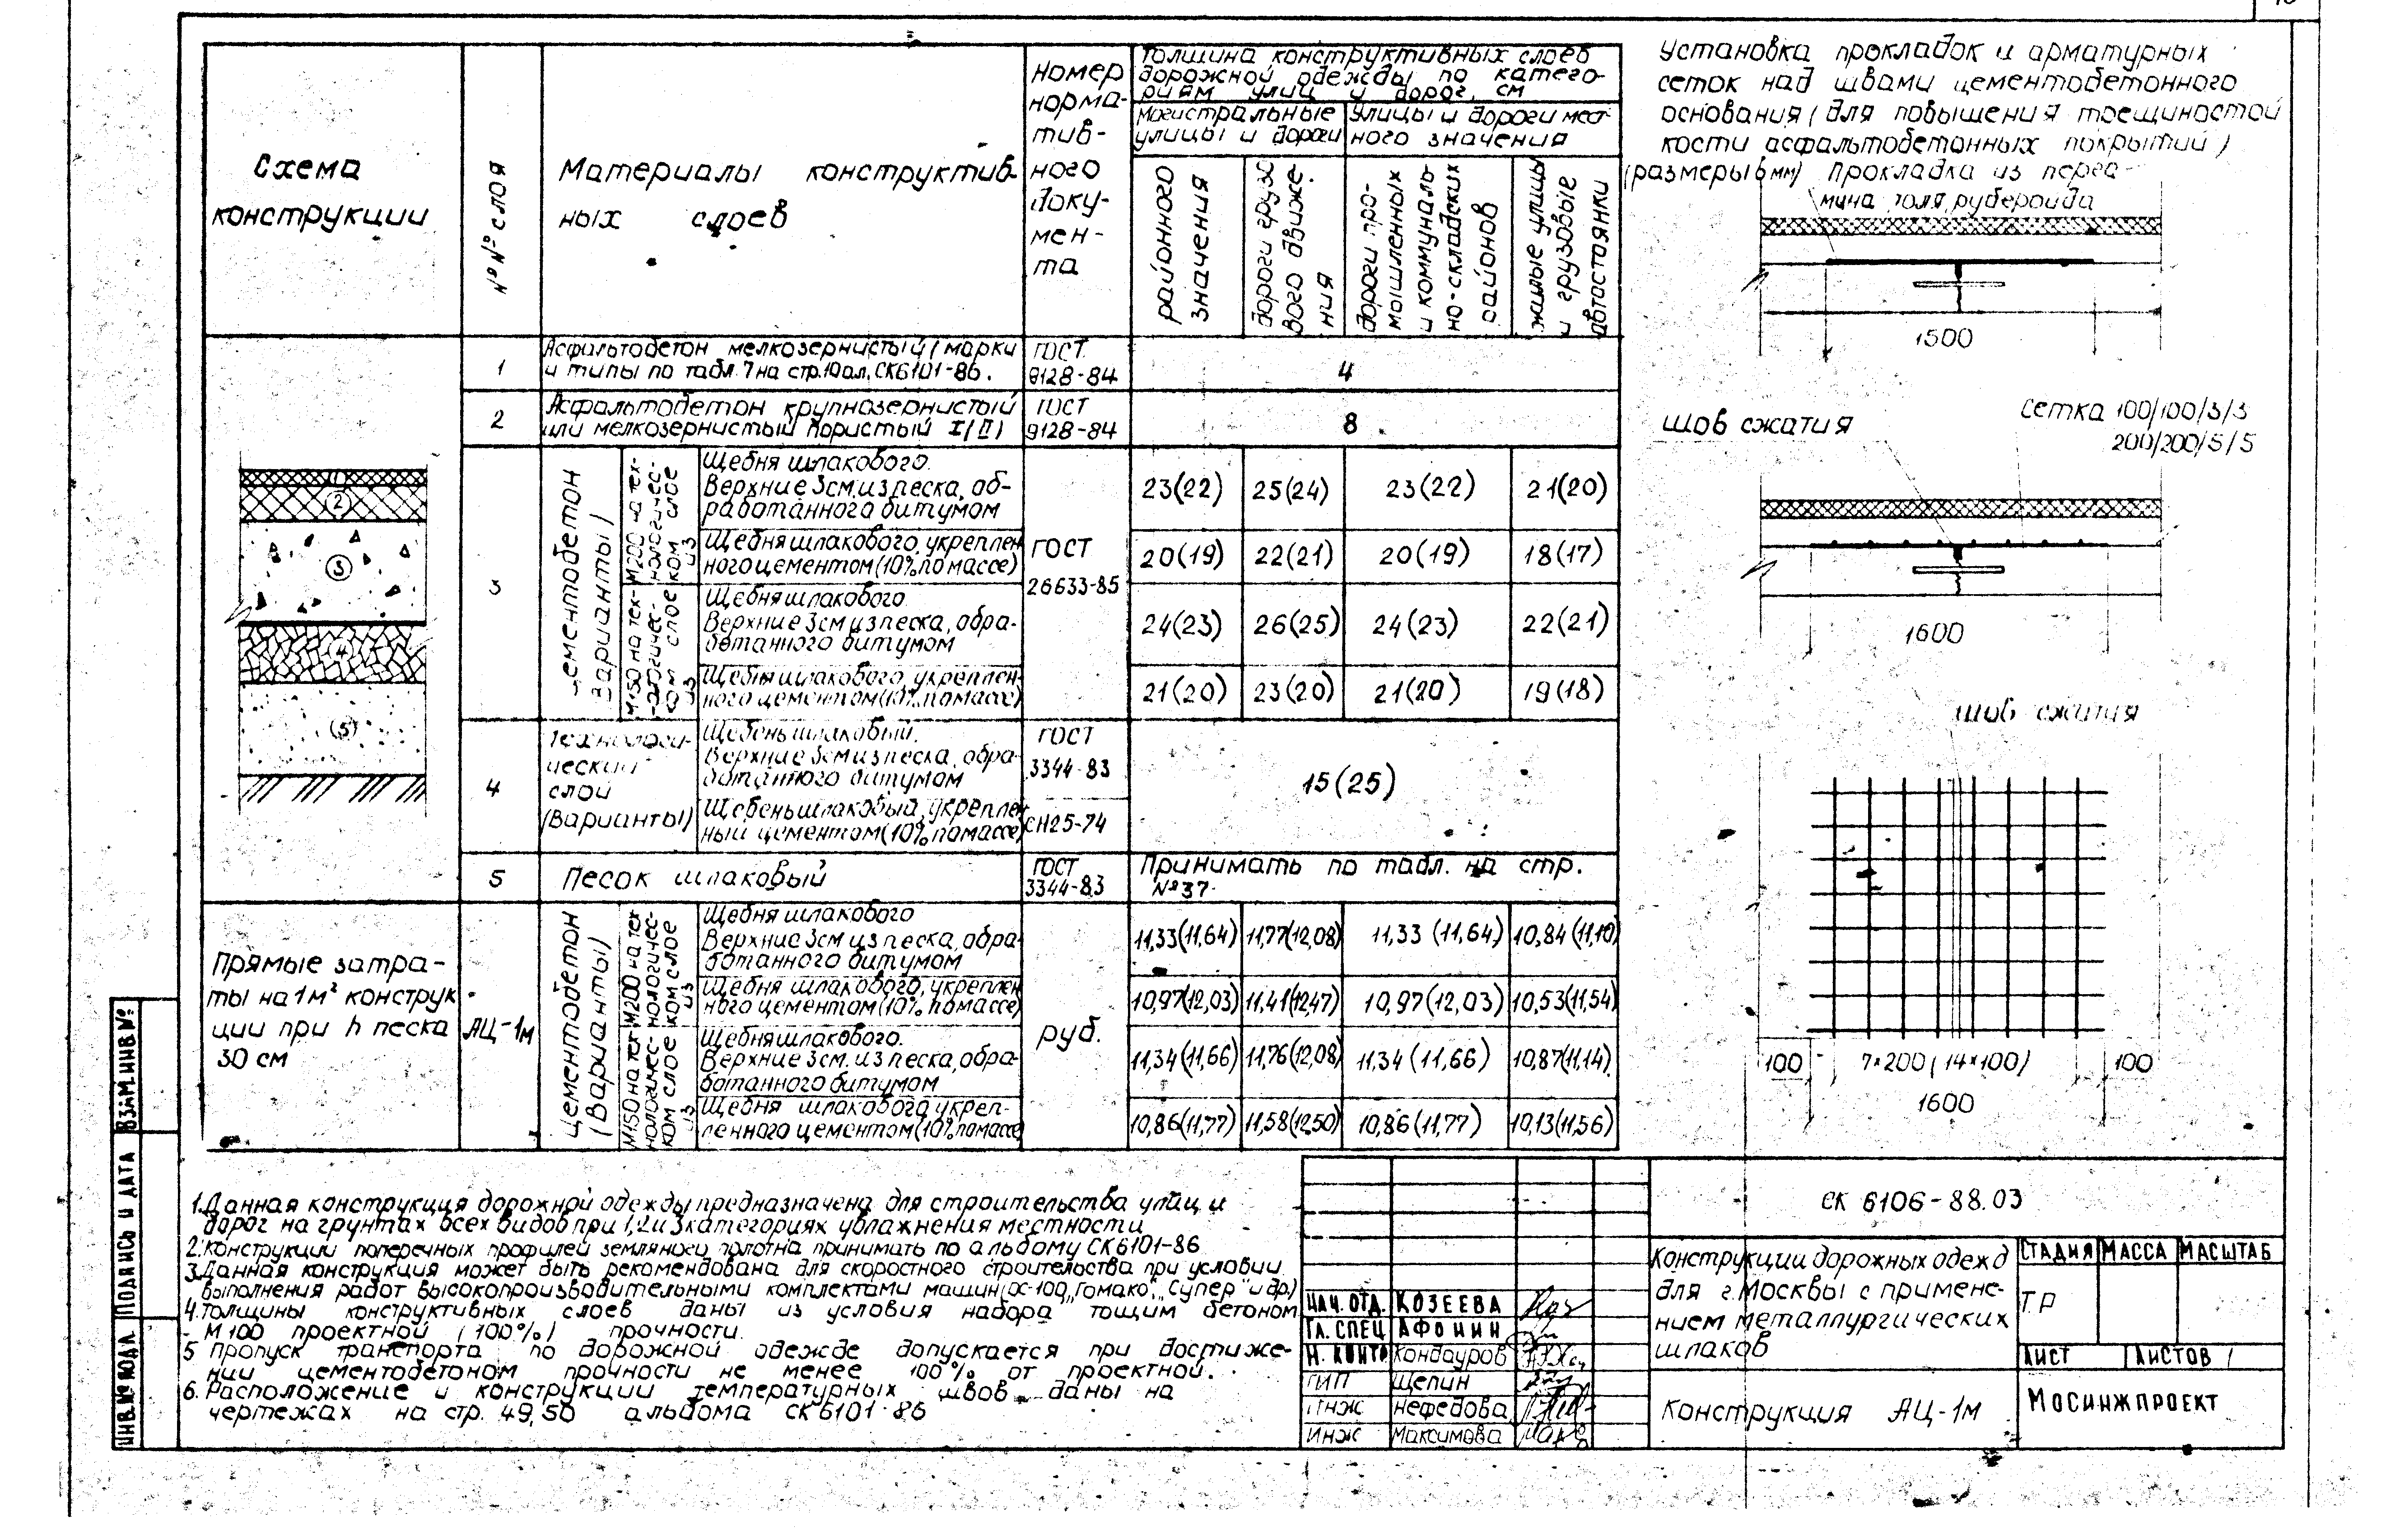 Схема
конструкции
№№ слоя
Материалы конструктив-
ных слоев
Номер
норма-
тив-
ного
доку-
мен-
та
Толщина конструктивных слоев
дорожной одежды по катего-
риям улиц и дорог, см
Магистральные
улицы и дороги
Улицы и дороги мест-
ного значения
районного
значения
дороги грузо
вого движе-
ния
дороги про-
мышленных
и коммуналь-
но-складских
районов
жилые улицы
и грузовые
автостоянки
1
Асфальтобетон мелкозернистый (марки
и типы по табл. 7 на стр. 10 ал. СК6101-86.
ГОСТ
9128-84
4
2
Асфальтобетон крупнозернистый
или мелкозернистый пористый I(II)
ГОСТ
9128-84
8
3
Цементобетон
(варианты)
М200 на тех-
нологичес-
ком слое
из
Щебня шлакового.
Верхние 3см. из песка, об-
работанного битумом
23(22) 25(24) 23(22) 21(20)
Щебня шлакового, укреплен
ного цементом (10% по массе)
20(19) 22(21) 20(19) 18(17)
ГОСТ
26633-85
М150 на тех-
нологичес-
ком слое
из
Щебня шлакового
Верхние 3см из песка, обра-
ботанного битумом
24(23) 26(25) 24(23) 22(21)
Щебня шлакового, укреплен-
ного цементом (10% по массе)
21(20) 23(20) 21(20) 19(18)
4
Технологи-
ческий
слой
(Варианты)
Щебень шлаковый.
Верхние 3см из песка, обра-
ботанного битумом
ГОСТ
3344-83
Щебень шлаковый, укреплен
ный цементом (10% по массе)
СН25-74
15(25)
5
Песок шлаковый
ГОСТ
3344-83
Принимать по табл. на стр.
№37.
2
3
4
5
Прямые затра-
ты на 1м² конструк
ции при h песка
30 см
АЦ-1м
Цементобетон
(Варианты)
М200 на тех
нологичес-
ком слое
из
Щебня шлакового
Верхние 3см из песка, обра-
ботанного битумом
11,33(11,64) 11,77(12,08) 11,33 (11,64) 10,84 (11,10)
Щебня шлакового, укреплен
ного цементом (10% по массе)
10,97(12,03) 11,41(12,47) 10,97(12,03) 10,53(11,54)
руб.
М150 на тех-
нологичес-
ком слое
из
Щебня шлакового.
Верхние 3см. из песка, обра-
ботанного битумом
11,34(11,66) 11,76(12,08) 11,34 (11,66) 10,87(11,14)
Щебня шлакового укреп-
ленного цементом (10% по массе
10,86(11,77) 11,58(12,50) 10,86(11,77) 10,13(11,56)
Установка прокладок и арматурных
сеток над швами цементобетонного
основания (для повышения трещиностой
кости асфальтобетонных покрытий)
(размеры в мм) Прокладка из перга-
мина толя, рубероида
1500
шов сжатия
Сетка 100/100/3/3
200/200/5/5
1600
шов сжатия
100 7×200 (14×100) 100
1600
1. Данная конструкция дорожной одежды предназначена для строительства улиц и
дорог на грунтах всех видов при 1,2 и 3 категориях увлажнения местности
2. Конструкции поперечных профилей земляного полотна принимать по альбому СК6101-86
3. Данная конструкция может быть рекомендована для скоростного строительства при условии
выполнения работ высокопроизводительными комплектами машин (ДС-100, „Гомако“, „Супер“ и др.)
4. Толщины конструктивных слоев даны из условия набора тощим бетоном
М100 проектной (100%) прочности.
5 Пропуск транспорта по дорожной одежде допускается при достиже-
нии цементобетоном прочности не менее 100% от проектной.
6. Расположение и конструкции температурных швов даны на
чертежах на стр. 49,50 альбома СК6101-86
ИНВ.№ ПОДЛ. ПОДПИСЬ И ДАТА ВЗАМ.ИНВ.№
НАЧ. ОТД. КОЗЕЕВА
ГЛ. СПЕЦ АФОНИН
Н. КОНТР Кондауров
ГИП Щепин
Нефедова
ИНЖ Максимова
СК 6106-88.03
Конструкции дорожных одежд
для г. Москвы с примене-
нием металлургических
шлаков
СТАДИЯ МАССА МАСШТАБ
ТР
ЛИСТ ЛИСТОВ 1
Конструкция АЦ-1м
МОСИНЖПРОЕКТ